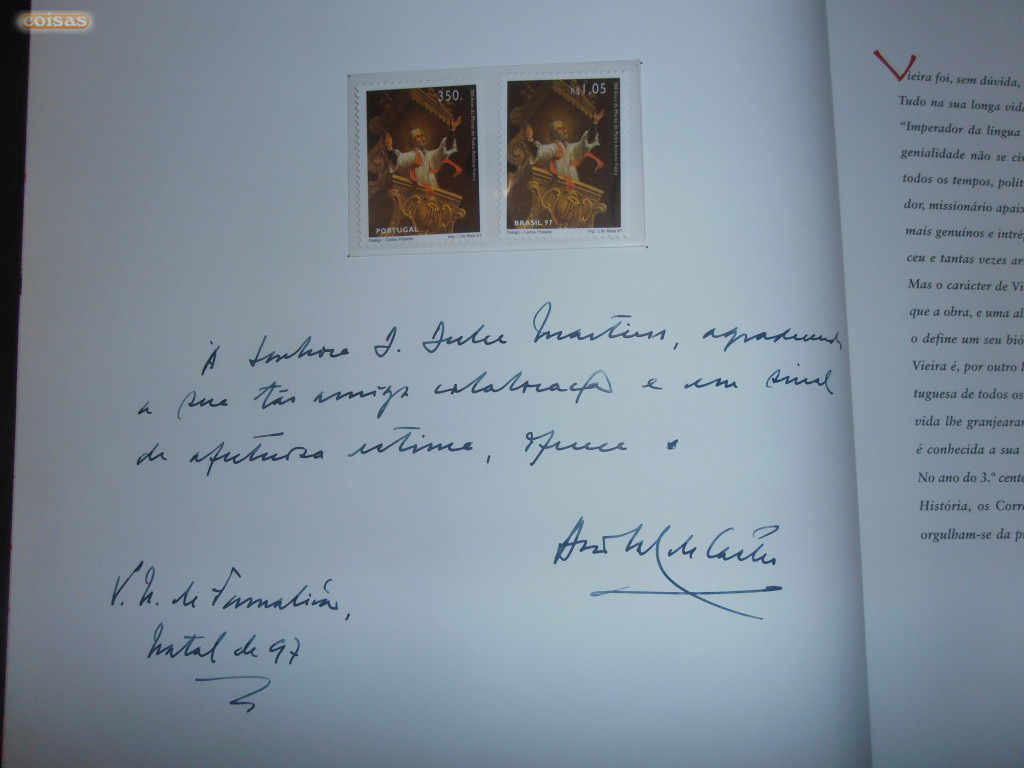 coisas
350.
300 Anos da Morte do Padre António Vieira
PORTUGAL
Design : Carlos Possolo
R$1,05
300 Anos da Morte do Padre António Vieira
BRASIL 97
Design : Carlos Possolo
À Senhora D. Dulce Martins, agradecendo
a sua tão amiga colaboração e em sinal
de afectuosa estima, oferece o
de Castro
V. N. de Famalicão,
Natal de 97
Vieira foi, sem dúvida,
Tudo na sua longa vida
"Imperador da língua
genialidade não se ci
todos os tempos, polít
dor, missionário apaix
mais genuínos e intré
ceu e tantas vezes ar
Mas o carácter de Vi
que a obra, e uma al
o define um seu bió
Vieira é, por outro l
tuguesa de todos os
vida lhe granjearan
é conhecida a sua
No ano do 3.º cente
História, os Corre
orgulham-se da p